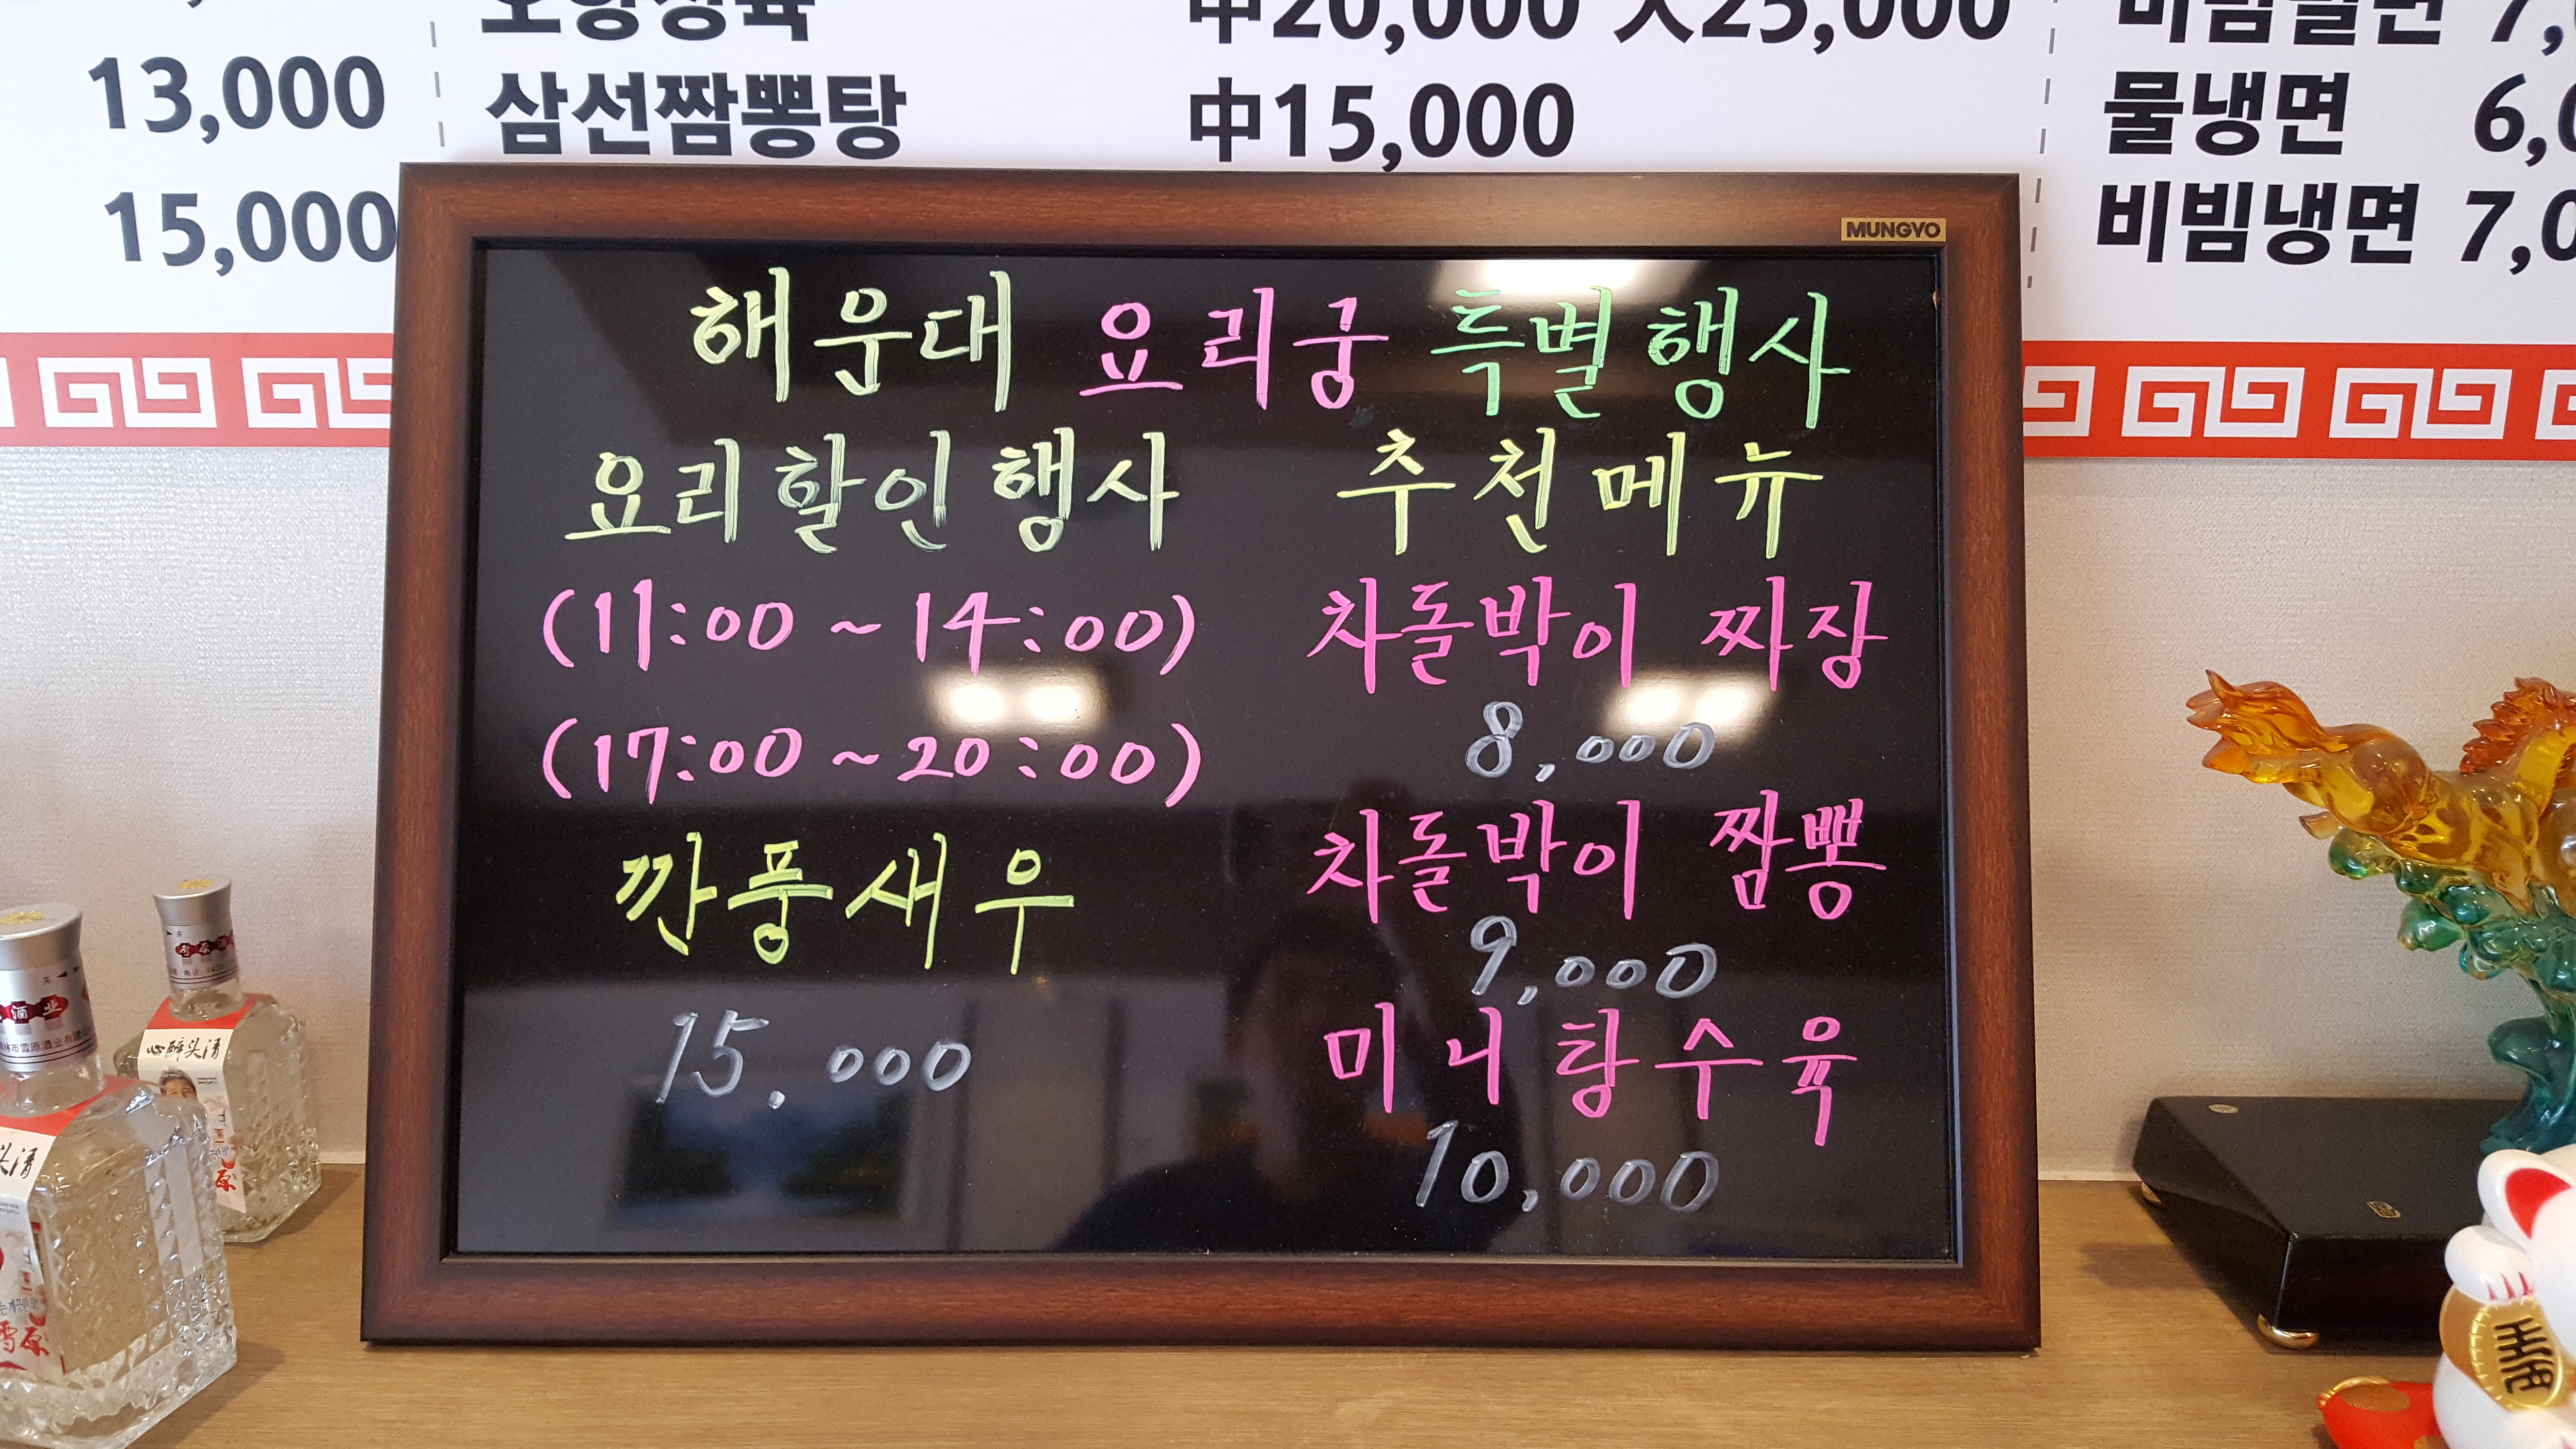 오향장육 中20,000 大25,000
13,000
삼선짬뽕탕 中15,000
물냉면
15,000
비빔냉면
MUNGYO
해운대 요리궁 특별행사
요리할인행사
(11:00 ~ 14:00)
(17:00 ~ 20:00)
깐풍새우
15.000
추천메뉴
차돌박이 짜장
8,000
차돌박이 짬뽕
9,000
미니탕수육
10,000
心醉头清
头清